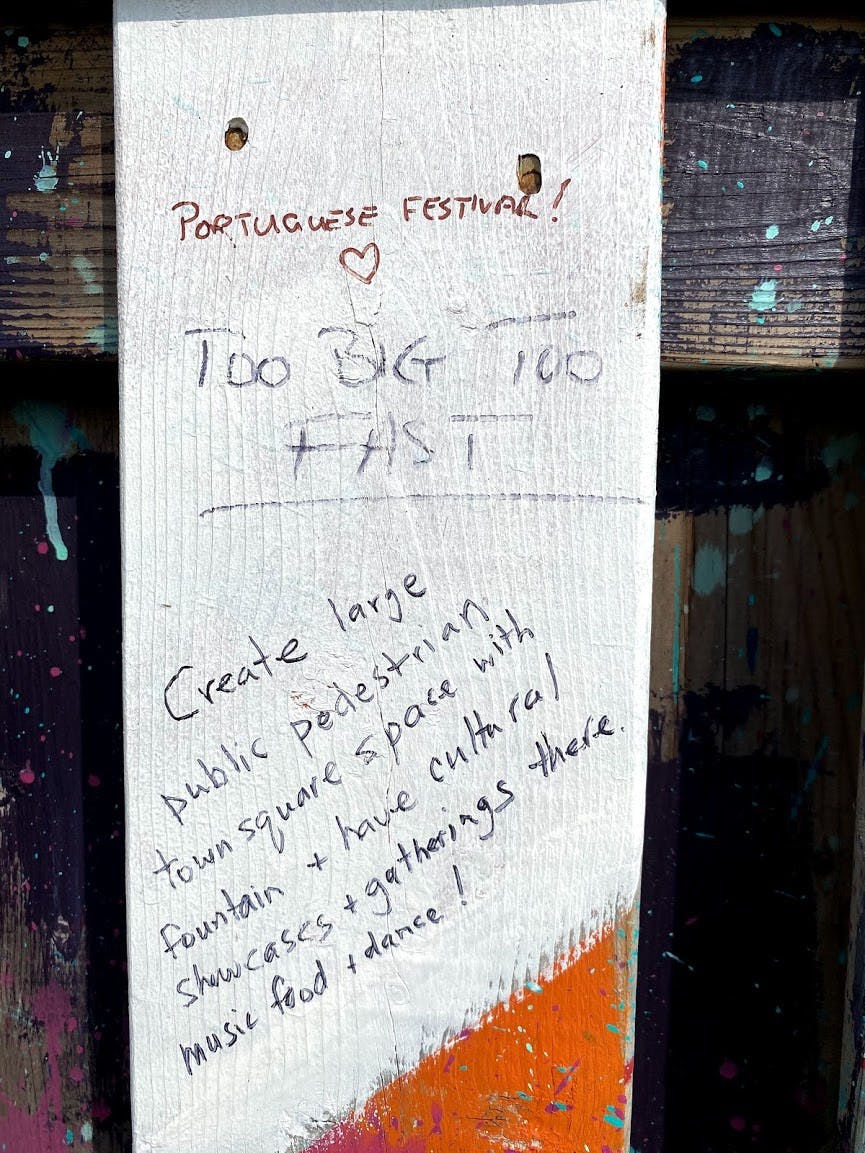 PORTUGUESE FESTIVAL!
TOO BIG TOO
FAST
Create large
public pedestrian
town square space with
fountain + have cultural
showcases + gatherings there.
music food + dance!